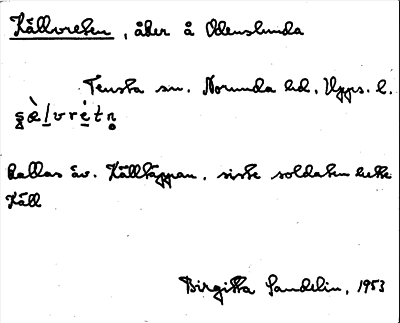 Källvreten, åker å Odenslunda
Tensta sn. Norunda hd, Upps. l.
kallas äv. Källtäppan. siste soldaten hette
Käll
Birgitta Sandelin, 1953